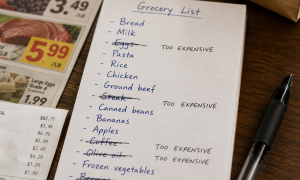 3.49
/LB
5.99
/LB
Large Eggs
Grocery List
- Bread
- Milk
- Eggs TOO EXPENSIVE
- Pasta
- Rice
- Chicken
- Ground beef
- Steak TOO EXPENSIVE
- Canned beans
- Bananas
- Apples
- Coffee TOO EXPENSIVE
- Olive oil TOO EXPENSIVE
- Frozen vegetables